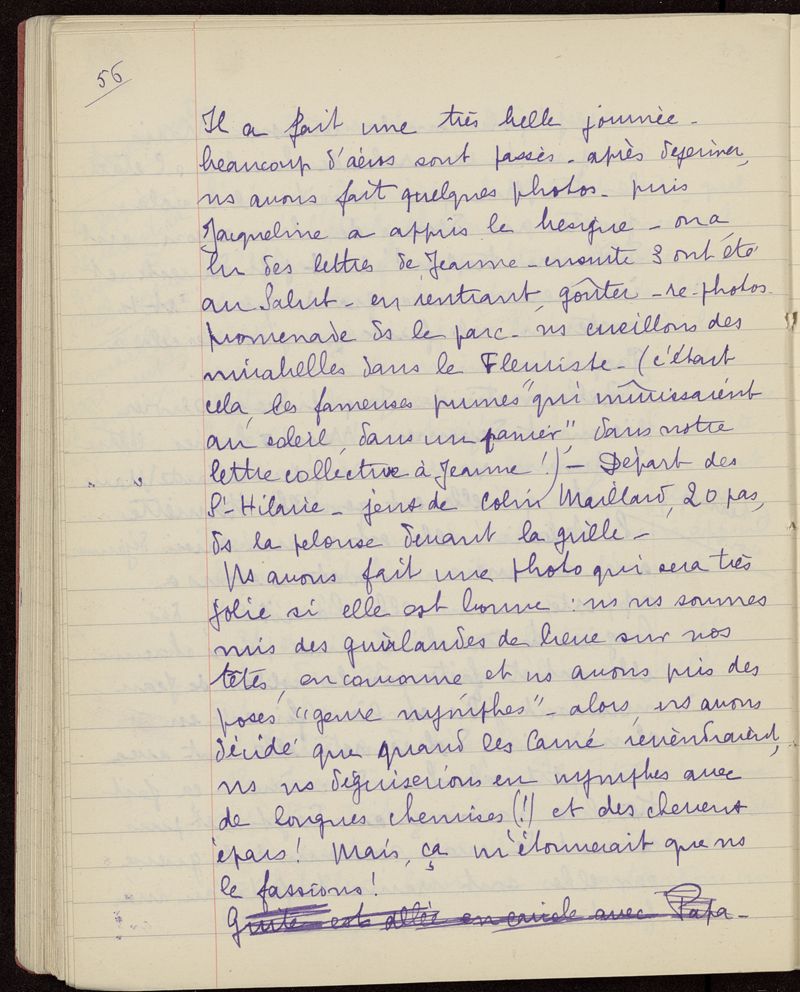 56
Il a fait une très belle journée -
beaucoup d'aéros sont passés - après déjeuner,
ns avons fait quelques photos - puis
Jacqueline a appris le besigue - on a
lu des lettres de Jeanne - ensuite 3 ont été
au Salut - en rentrant, goûter - re-photos -
promenade ds le parc - ns cueillons des
mirabelles dans le Fleuriste - (c'étart
cela, les fameuses prunes "qui mûrissaient
au soleil, dans un panier", dans notre
lettre collective à Jeanne !) - Départ des
St-Hilaire - jeux de Colin Maillard, 20 pas,
ds la pelouse devant la grille -
Ns avons fait une photo qui sera très
jolie si elle est bonne : ns ns sommes
mis des guirlandes de lierre sur nos
têtes, en couronne et ns avons pris des
poses "genre nymphes" - alors, ns avons
décidé que quand les Carné reviendraient,
ns ns déguiserions en nymphes avec
de longues chemises (!) et des cheveux
épars ! Mais, ça m'étonnerait que ns
le fassions !
Guite est allée en avec Papa -